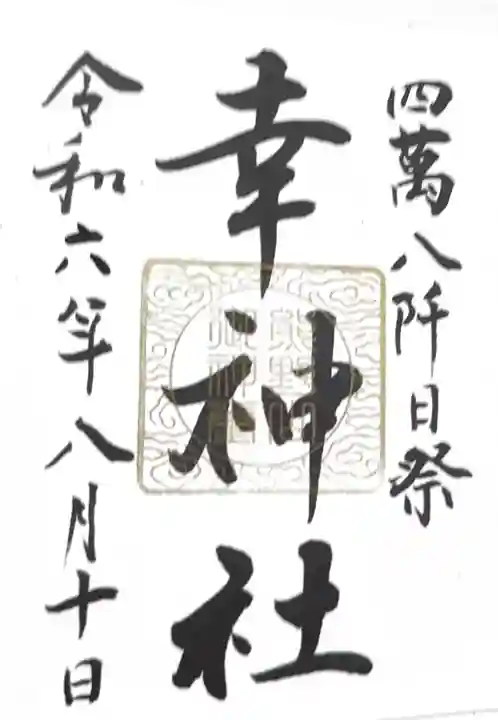 四萬八阡日祭
幸神社
令和六年八月十日